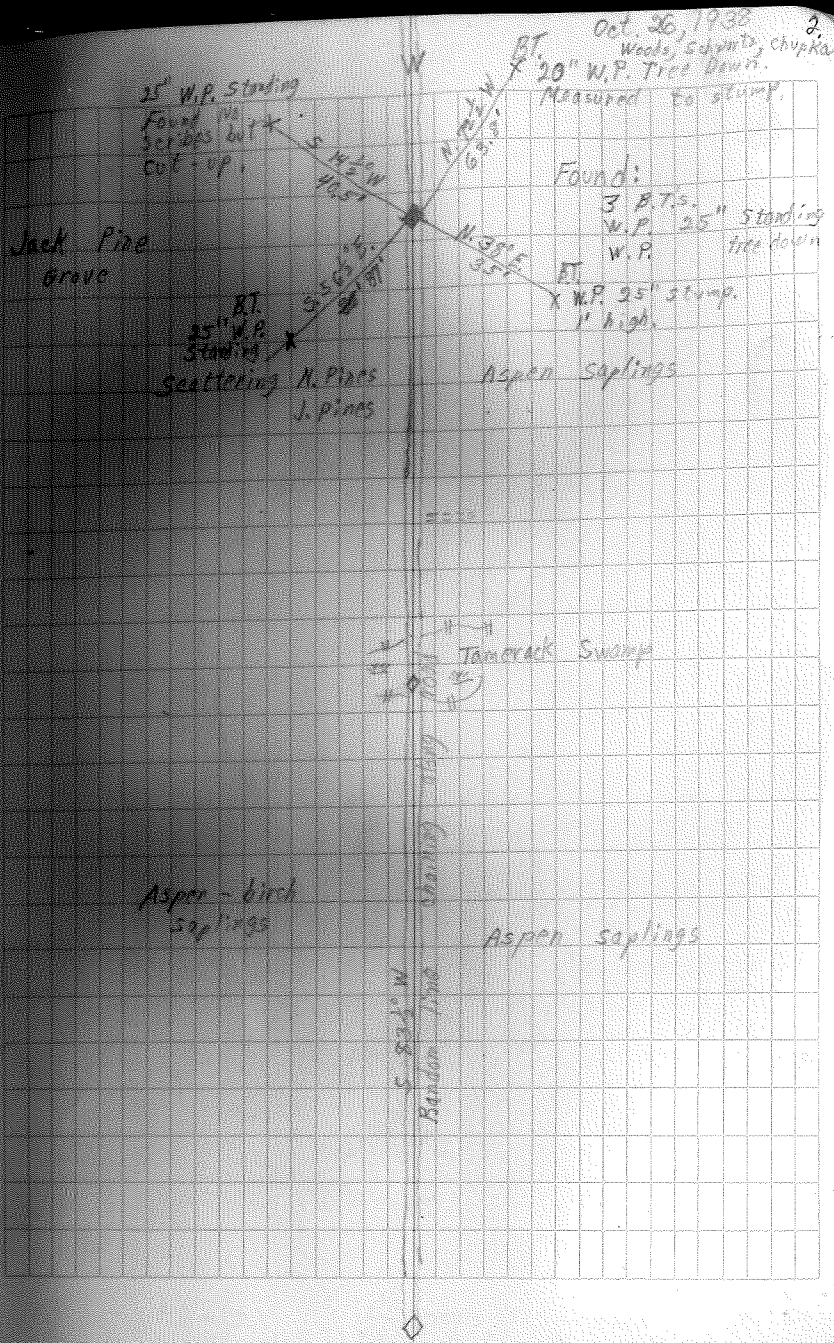 2.
Oct. 26, 1938
Woods, Schwartz, Chupka
W
B.T.
20" W.P. Tree Down.
Measured to stump.
25" W.P. Standing
Found No
Scribes but
cut-up.
S 14½° W
40.5'
N. W
63.8'
Found:
3 B.T.s.
W.P. 25" Standing
W.P. tree down
Jack Pine
Grove
N. 38° E.
35'
B.T.
W.P. 25" stump.
1' high.
S 63½° E.
B.T.
25" W.P.
Standing
Scattering N. Pines
J. Pines
Aspen Saplings
Tamerack Swamp
Aspen - birch
saplings
Aspen saplings
S 83½° W
Random line chaining along road